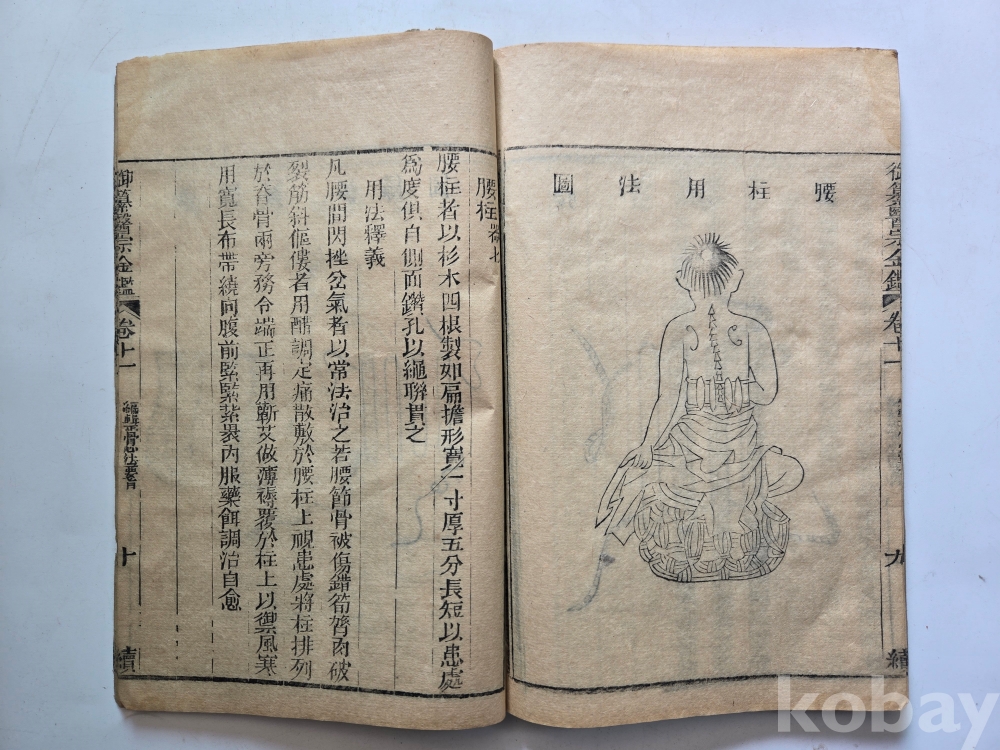 御纂醫宗金鑑 卷十一 九 續
腰柱用法圖
腰柱 器七
腰柱者以杉木四根製如扁擔形寬一寸厚五分長短以患處
爲度俱自側面鑽孔以繩聯貫之
用法釋義
凡腰間閃挫岔氣者以常法治之若腰節骨被傷錯筍膂肉破
裂筋斜傴僂者用醋調定痛散敷於腰柱上視患處將柱排列
於脊骨兩旁務令端正再用蘄艾做薄褥覆於柱上以禦風寒
用寬長布帶繞向腹前緊緊紮裹內服藥餌調治自愈
御纂醫宗金鑑 卷十一 編輯正骨心法要旨 十 續
kobay